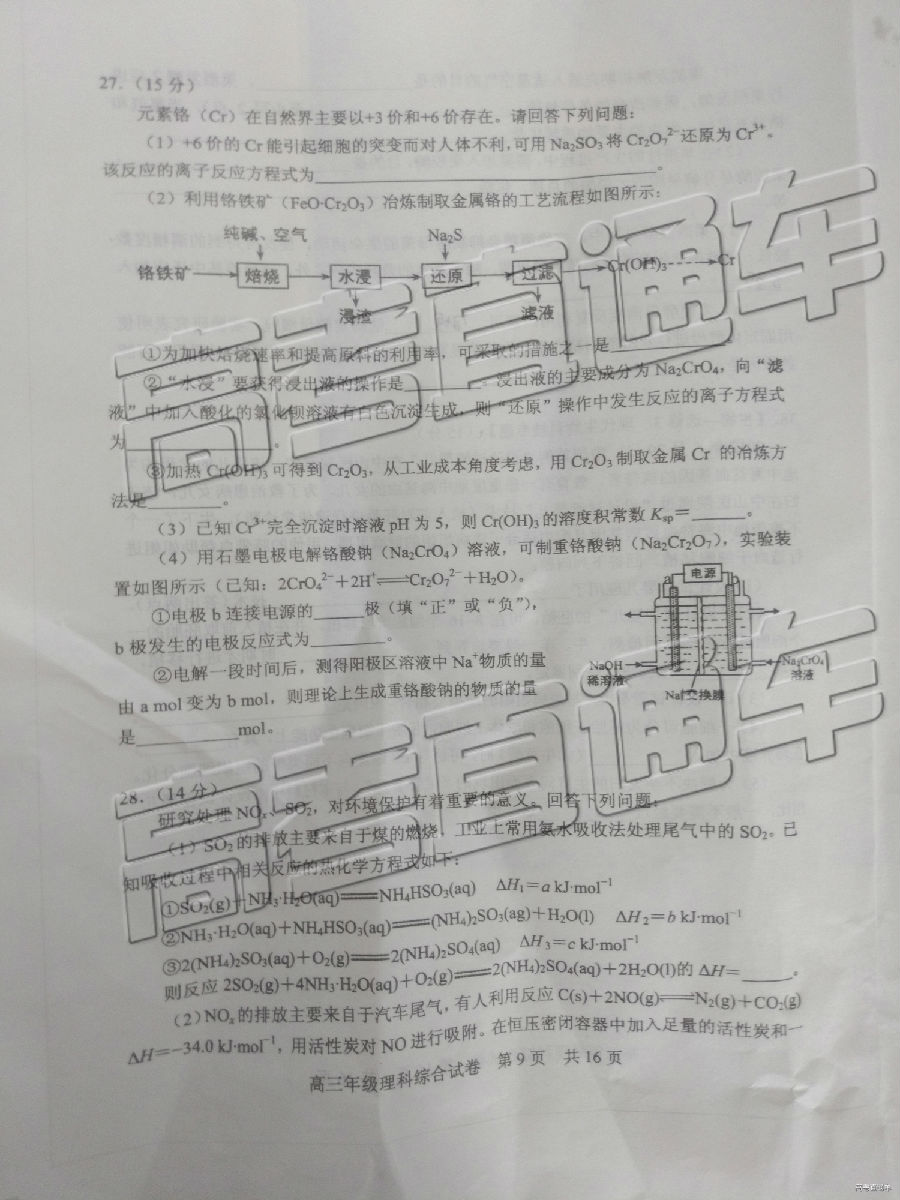 27.（15分）
元素铬（Cr）在自然界主要以+3价和+6价存在。请回答下列问题：
（1）+6价的Cr能引起细胞的突变而对人体不利,可用Na₂SO₃将Cr₂O₇²⁻还原为Cr³⁺。
该反应的离子反应方程式为____________________。
（2）利用铬铁矿（FeO·Cr₂O₃）冶炼制取金属铬的工艺流程如图所示：
纯碱、空气 Na₂S
铬铁矿 焙烧 水浸 还原 过滤 Cr(OH)₃ Cr
浸渣 滤液
①为加快焙烧速率和提高原料的利用率，可采取的措施之一是__________
②“水浸”要获得浸出液的操作是________。浸出液的主要成分为Na₂CrO₄，向“滤
液”中加入酸化的氯化钡溶液有白色沉淀生成，则“还原”操作中发生反应的离子方程式
为____________。
③加热Cr(OH)₃可得到Cr₂O₃，从工业成本角度考虑，用Cr₂O₃制取金属Cr 的冶炼方
法是________。
（3）已知Cr³⁺完全沉淀时溶液pH为5，则Cr(OH)₃的溶度积常数Ksp＝______。
（4）用石墨电极电解铬酸钠（Na₂CrO₄）溶液，可制重铬酸钠（Na₂Cr₂O₇），实验装
置如图所示（已知：2CrO₄²⁻+2H⁺⇌Cr₂O₇²⁻+H₂O）。
①电极b连接电源的_____极（填“正”或“负”），
b极发生的电极反应式为________。
②电解一段时间后，测得阳极区溶液中Na⁺物质的量
由a mol变为b mol，则理论上生成重铬酸钠的物质的量
是__________mol。
电源
a b
NaOH
稀溶液
Na₂CrO₄
溶液
Na⁺交换膜
28.（14分）
研究处理NOₓ、SO₂，对环境保护有着重要的意义。回答下列问题：
（1）SO₂的排放主要来自于煤的燃烧，工业上常用氨水吸收法处理尾气中的SO₂。已
知吸收过程中相关反应的热化学方程式如下：
①SO₂(g)+NH₃·H₂O(aq)═══NH₄HSO₃(aq) ΔH₁＝a kJ·mol⁻¹
②NH₃·H₂O(aq)+NH₄HSO₃(aq)═══(NH₄)₂SO₃(ag)+H₂O(l) ΔH₂＝b kJ·mol⁻¹
③2(NH₄)₂SO₃(aq)+O₂(g)═══2(NH₄)₂SO₄(aq) ΔH₃＝c kJ·mol⁻¹
则反应2SO₂(g)+4NH₃·H₂O(aq)+O₂(g)═══2(NH₄)₂SO₄(aq)+2H₂O(l)的ΔH＝_____。
（2）NOₓ的排放主要来自于汽车尾气，有人利用反应C(s)+2NO(g)⇌N₂(g)+CO₂(g)
ΔH＝−34.0 kJ·mol⁻¹，用活性炭对NO进行吸附。在恒压密闭容器中加入足量的活性炭和一
高三年级理科综合试卷 第9页 共16页
高考直通车
高考直通车